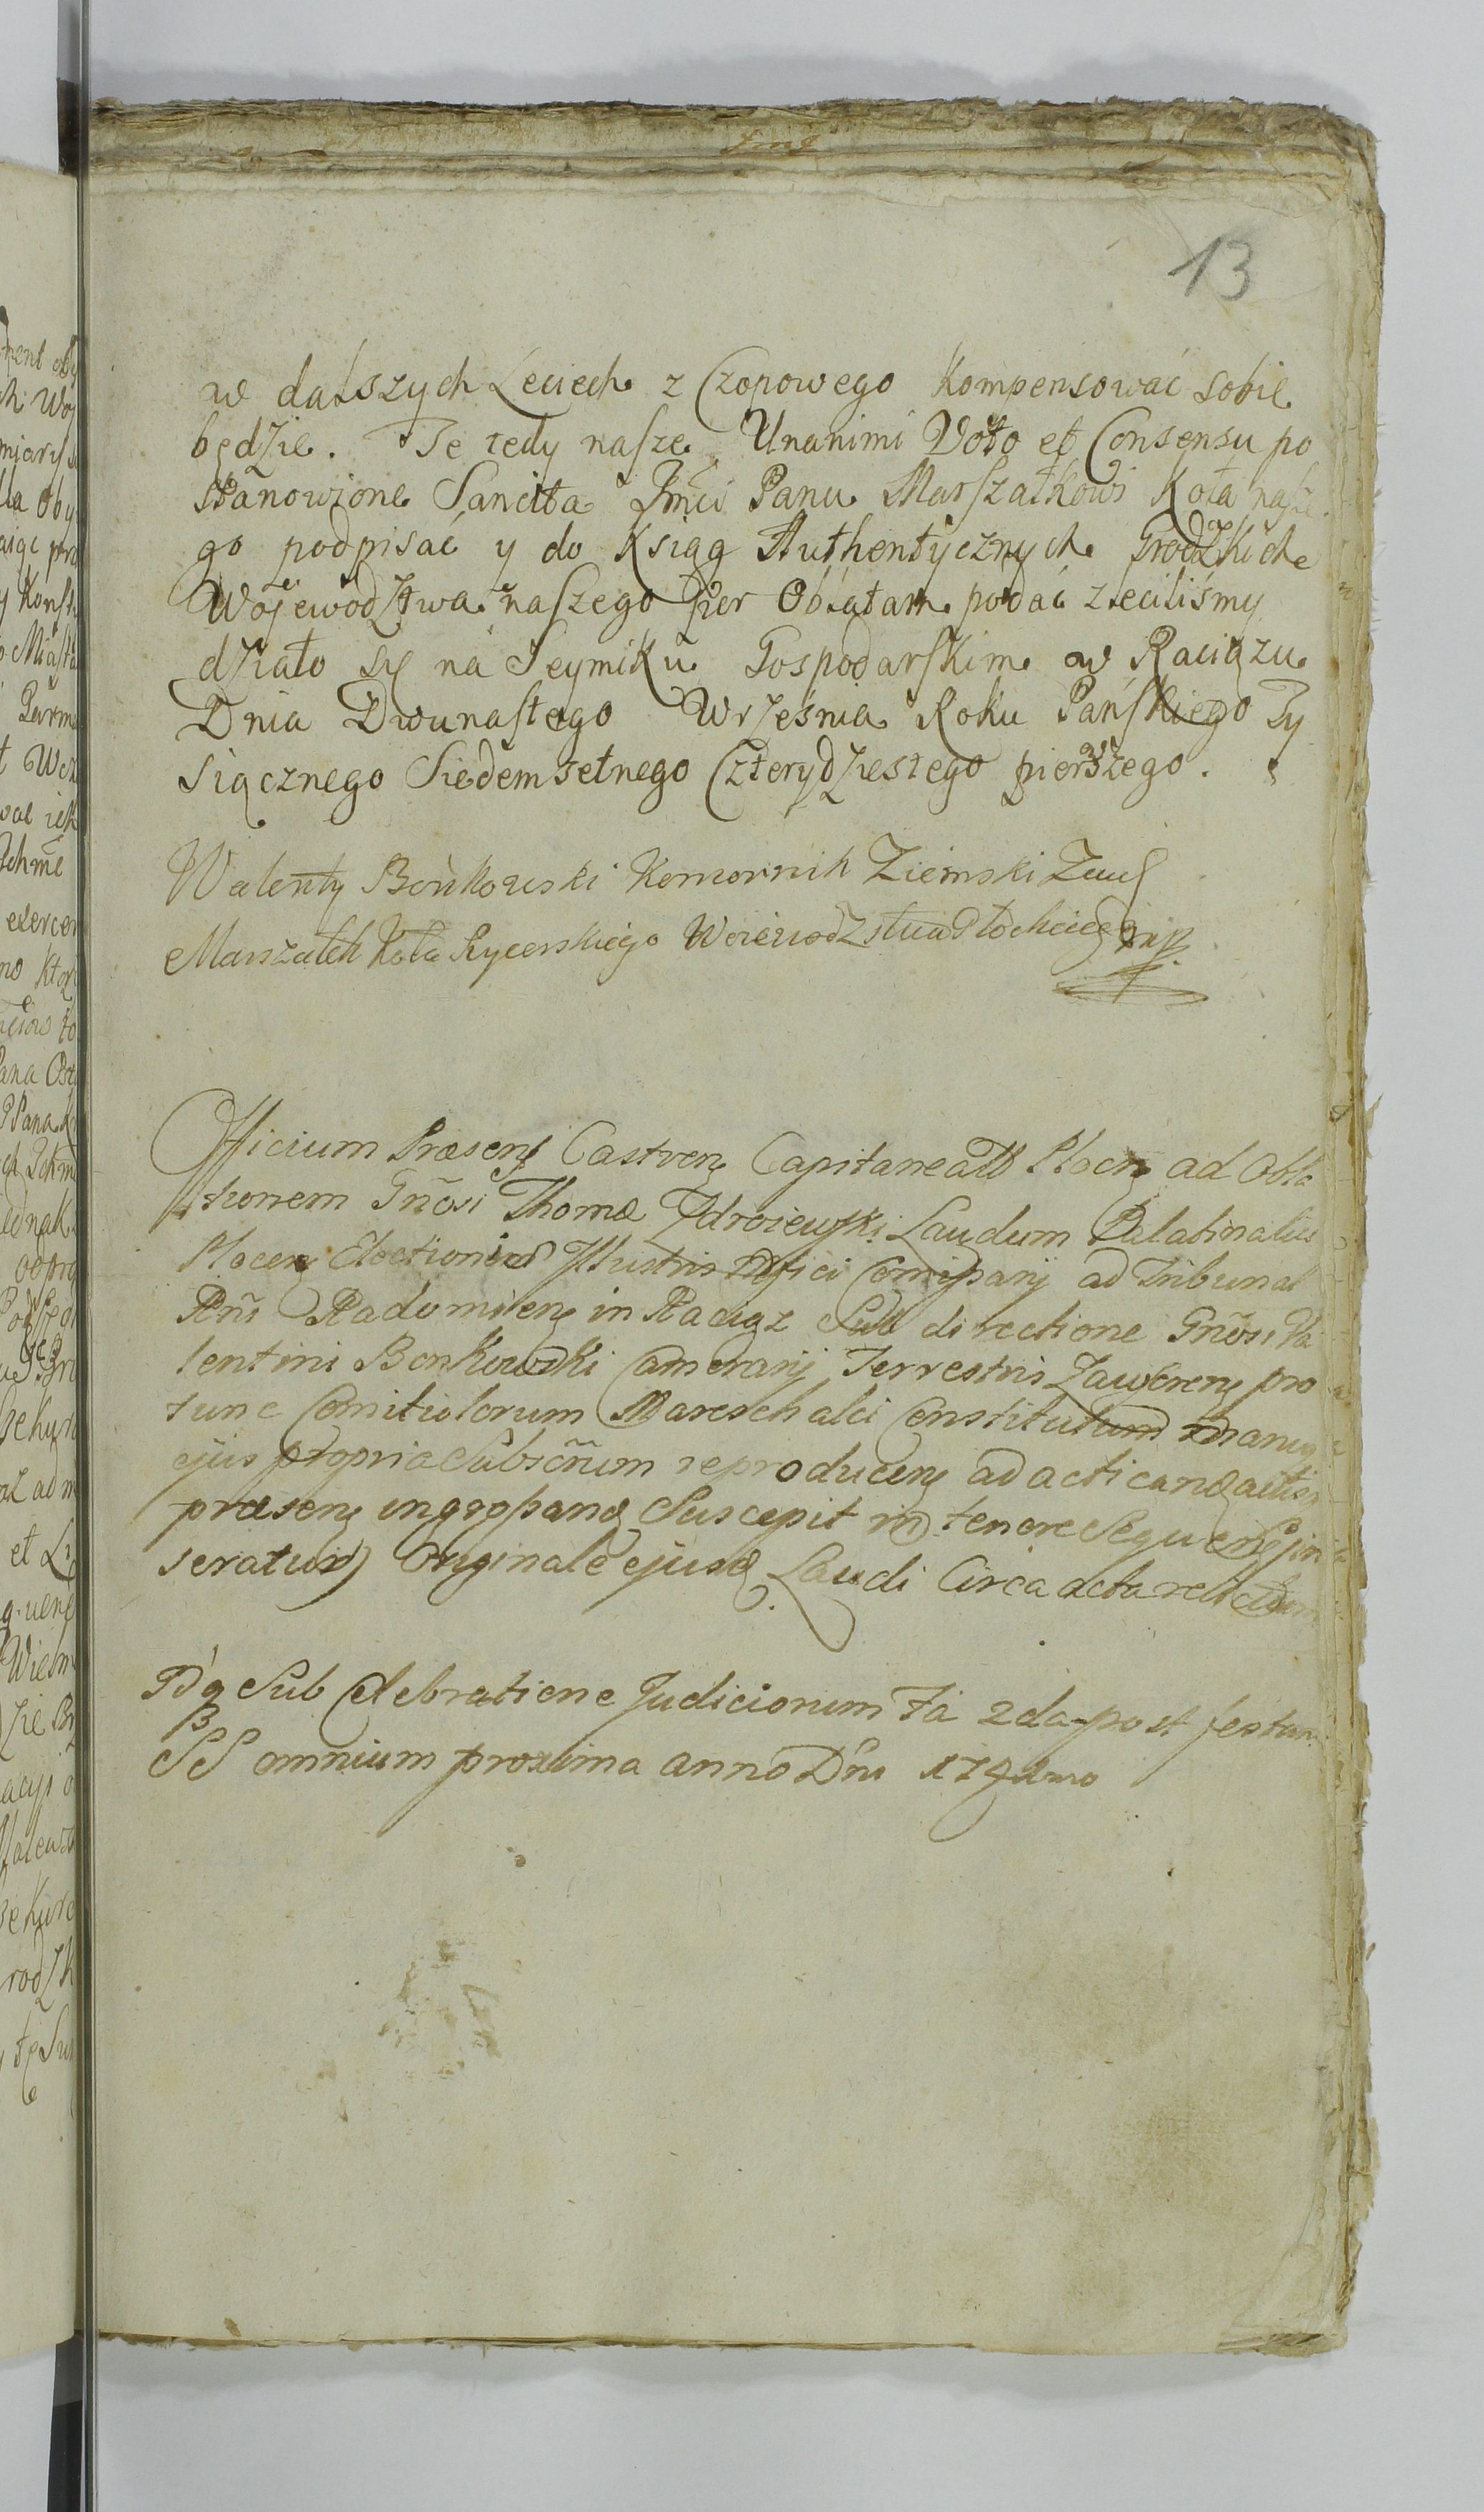 13
w dalszych Leciech z Czopowego Kompensować sobie
będzie. Te tedy nasze Unanimi Voto et Consensu po
stanowione Sancita Jmći Panu Marszałkowi Koła nasze
go podpisać y do Ksiąg Authentycznych Grodzkich
Wojewodztwa naszego Per Oblatam podać zleciliśmy
działo sy na Seymiku Gospodarskim w Raciązu
Dnia Dwunastego Września Roku Pańskiego Ty
siącznego Siedemsetnego Czterydziestego pierwszego.
Walenty Bońkowski Komornik Ziemski Zaw
Marszałek Koła Rycerskiego Woiewodztwa Płockiego mp
Officium Præsens Castren Capitaneatus Plocen ad Obla
tionem Gñosi Thomæ Zdroiewski Laudum Palatinatus
Plocen Electionis Illustris Mfici Comissarij ad Tribunal
Rñi Radomien in Raciąz Sub directione Gñosi Va
lentini Bonkowski Camerarij Terrestris Zawkren pro
tunc Comitiolorum Mareschalci Constitutum manu
ejus propria Subscrm reproducen ad acticand actis
præsen ingrossand Suscepit in tenore Sequen in
seratur) Originale ejusd Laudi Circa acta relictum
Sub Celebratione Judiciorum Fa 2da post festum
SS omnium proxima anno Dni 1741mo